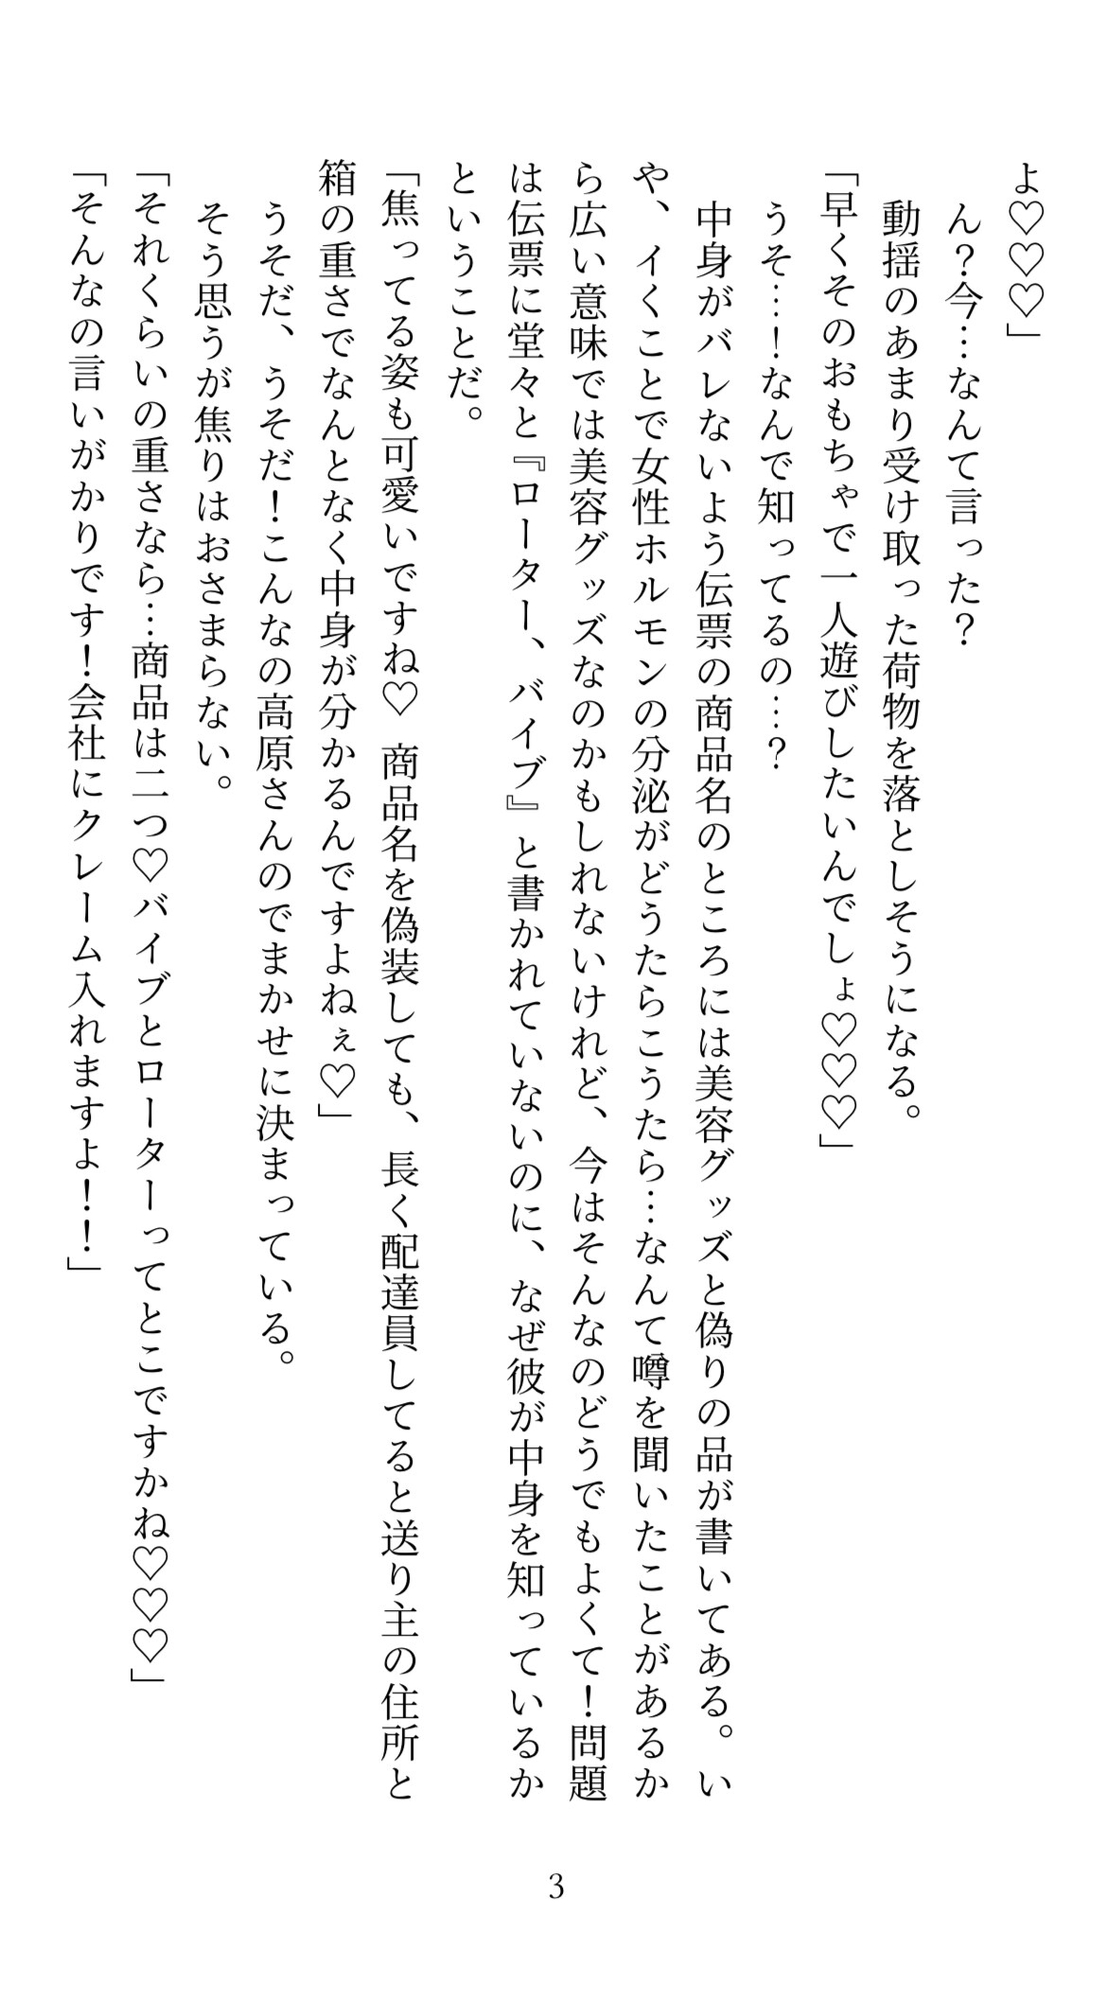 よ♡♡♡」
ん？今…なんて言った？
動揺のあまり受け取った荷物を落としそうになる。
「早くそのおもちゃで一人遊びしたいんでしょ♡♡♡」
うそ…！なんで知ってるの…？
中身がバレないよう伝票の商品名のところには美容グッズと偽りの品が書いてある。い
や、イくことで女性ホルモンの分泌がどうたらこうたら…なんて噂を聞いたことがあるか
ら広い意味では美容グッズなのかもしれないけれど、今はそんなのどうでもよくて！問題
は伝票に堂々と『ローター、バイブ』と書かれていないのに、なぜ彼が中身を知っているか
ということだ。
「焦ってる姿も可愛いですね♡　商品名を偽装しても、長く配達員してると送り主の住所と
箱の重さでなんとなく中身が分かるんですよねぇ♡」
うそだ、うそだ！こんなの高原さんのでまかせに決まっている。
そう思うが焦りはおさまらない。
「それくらいの重さなら…商品は二つ♡バイブとローターってとこですかね♡♡♡」
「そんなの言いがかりです！会社にクレーム入れますよ！！」
3